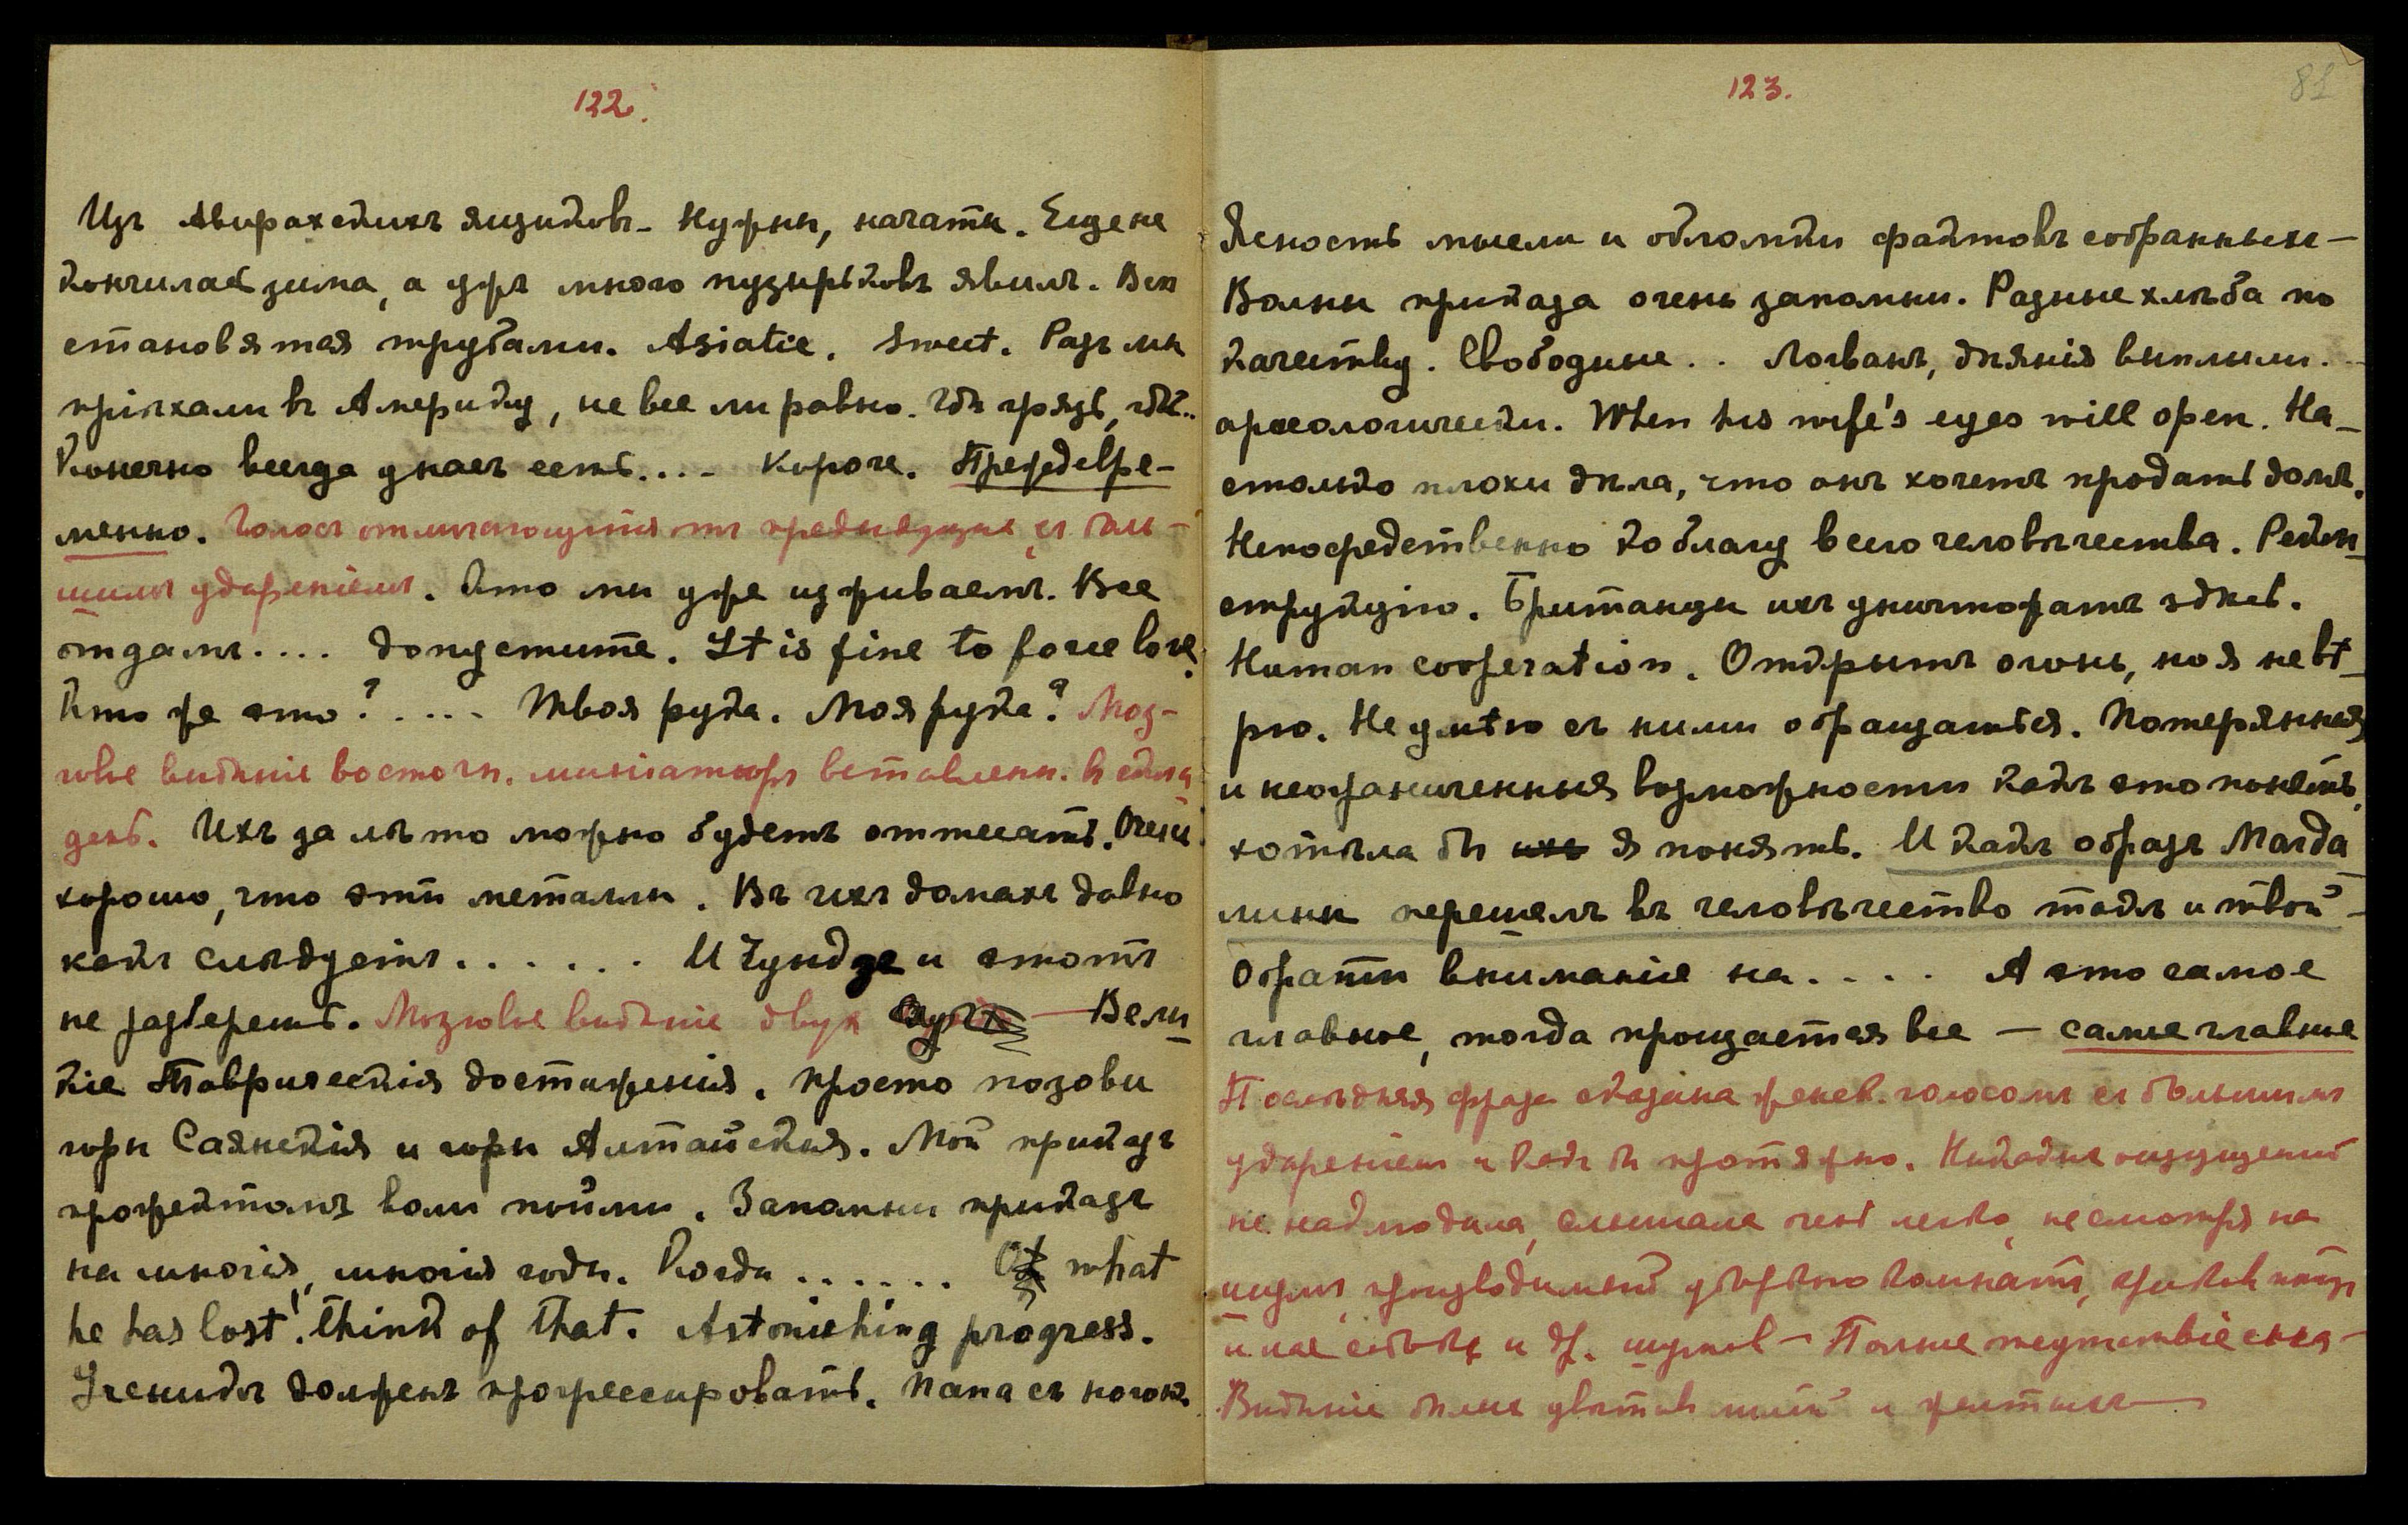 122.
Изъ Авирахскихъ ящиковъ – нужны, начаты. Еще не
кончилась зима, а ужъ много пузырьковъ явилъ. Всѣ
становятся трубами. Asiatic. Sweet. Разъ мы
пріѣхали въ Америку, не все ли равно. Гдѣ грязь, гдѣ..
Конечно всегда у насъ есть.... Короче. Преждевре-
менно. Голосъ отличающійся отъ предыдущихъ съ боль-
шимъ удареніемъ. Это мы уже изживаемъ. Все
отдамъ.... допустите. It is fine to force love.
Кто же это?.... Твоя рука. Моя рука? Моз-
говое видѣніе восточн. миніатюръ вставленн. въ
Ихъ за лѣто можно будетъ оттесать. Очень
хорошо, что эти металлы. Въ ихъ домахъ давно
какъ слѣдуетъ...... И и этотъ
не разберешь. Мозговое видѣніе двухъ — Вели-
кіе Таврическія достиженія. Просто позови
горы Саянскія и горы Алтайскія. Мой приказъ
прожектомъ воли пойми. Запомни приказъ
на многія, многія годы. Когда ....... what
he has lost! think of that. Astonishing progress.
Ученикъ долженъ прогрессировать. Папа съ ногокъ
123.
81
Ясность мысли и обломки фактовъ собранныхъ –
Волны приказа очень запомни. Разные хлѣба по
качеству. Свободные.. Логванъ, дѣянія выплыли. –
археологически. When his wife's eyes will open. На-
столько плохи дѣла, что онъ хочетъ продать домъ.
Непосредственно ко благу всего человѣчества. Рекон-
струкцію. Британцы ихъ уничтожатъ здѣсь.
Human cooperation. Открытъ огонь, но я не вѣ-
рю. Не умѣю съ ними обращаться. Потерянныя
и неограниченныя возможности какъ это понять,
хотѣла бы я понять. И какъ образъ Магда-
лины перешелъ въ человѣчество такъ и твой –
Обрати вниманіе на.... А это самое
главное, тогда прощается все — самые главные
Послѣдняя фраза сказана женск. голосомъ съ большимъ
удареніемъ и какъ бы протяжно. Никакихъ ощущеній
не наблюдала, слышала очень легко, несмотря на
шумъ, производимый уборкою комнаты,
и лае собакъ и др. шумовъ – Полное отсутствіе сна –
Видѣніе бѣлыхъ цвѣтовъ и желтыхъ —